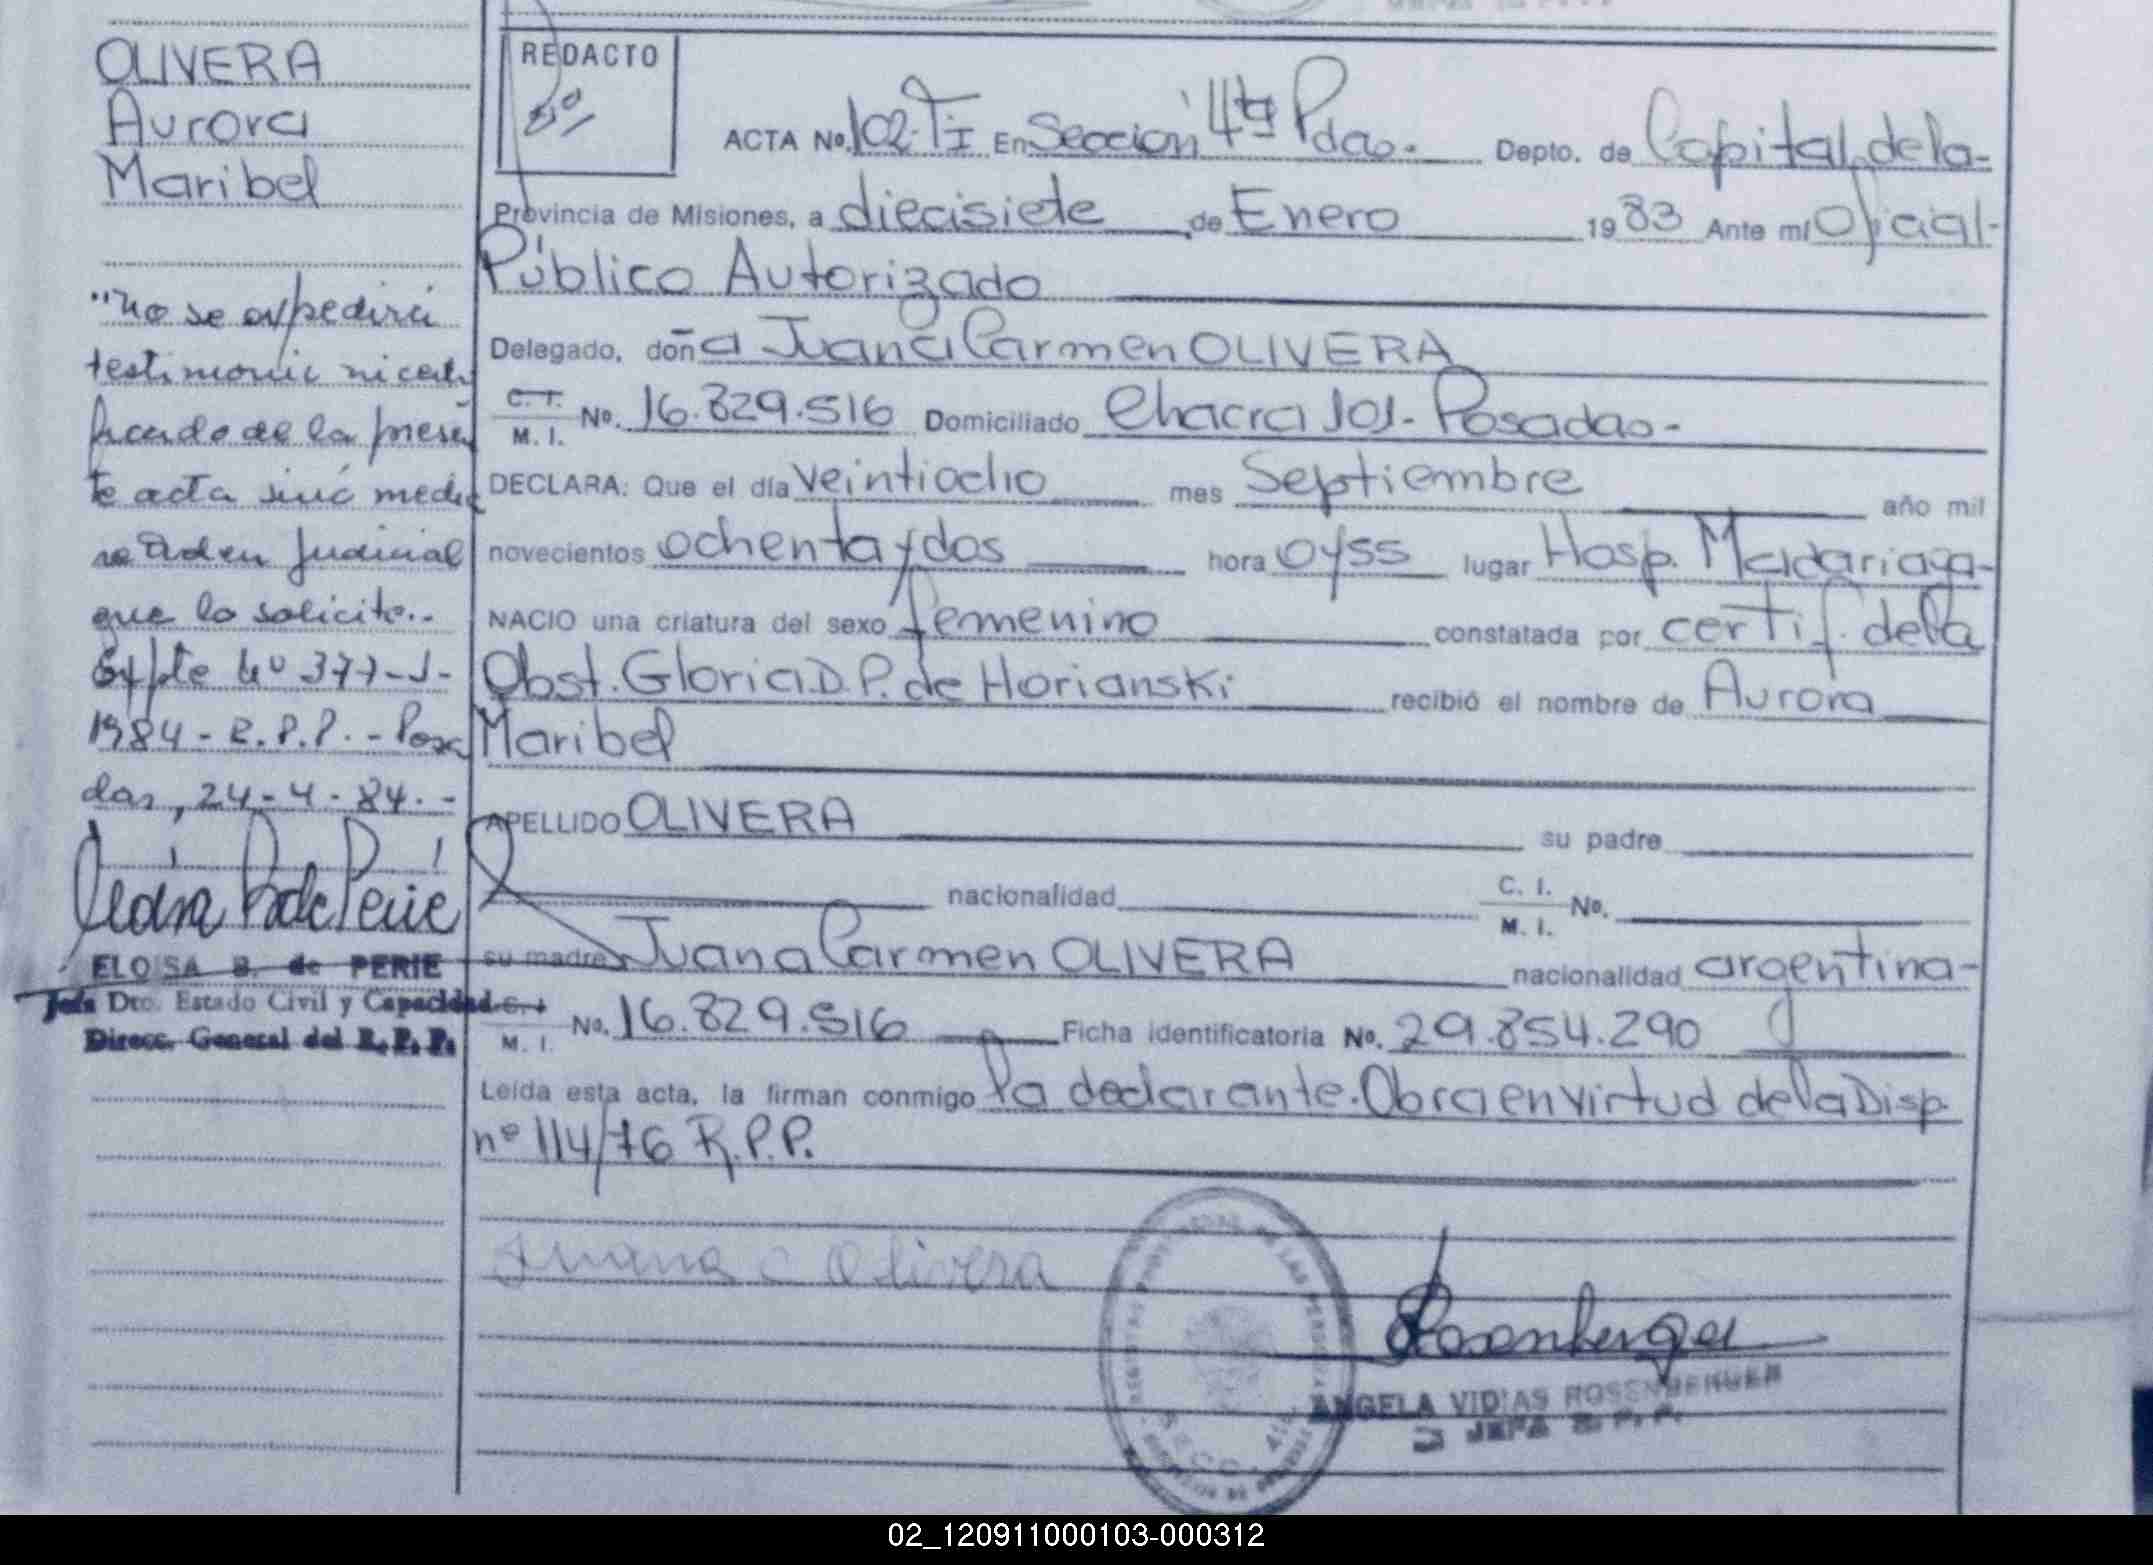 OLIVERA
Aurora
Maribel
"no se expedirá
testimonio ni certi
ficado de la presen
te acta sinó media
re orden Judicial
que lo solicite.-
Expte nº 377-J-
1984-R.P.P.-Posa
das, 24-4-84.-
ELOISA B. de PERIE
Jefa Dto. Estado Civil y Capacidad
Direcc. General del R. P. P.
REDACTO
ACTA Nº. 102-TI En Sección 4ta Pdas. Depto. de Capital de la
Provincia de Misiones, a diecisiete de Enero 1983 Ante mí Oficial
Público Autorizado
Delegado, doña Juana Carmen OLIVERA
C. I. M. I. Nº. 16.829.516 Domiciliado Chacra 101- Posadas-
DECLARA: Que el día veintiocho mes Septiembre año mil
novecientos ochenta y dos hora 0y55 lugar Hosp. Madariaga-
NACIO una criatura del sexo femenino constatada por certif. de la
Obst. Gloria D.P. de Horianski recibió el nombre de Aurora
Maribel
APELLIDO OLIVERA su padre
nacionalidad C. I. M. I. Nº.
su madre Juana Carmen OLIVERA nacionalidad argentina-
C. I. M. I. Nº. 16.829.516 Ficha identificatoria Nº. 29.854.290
Leída esta acta, la firman conmigo la declarante. Obra en virtud de la Disp.
nº 114/76 R.P.P.
Juana C Olivera
Rosenberger
ANGELA VIDIAS ROSENBERGER
JEFA R. P. P.
02_120911000103-000312